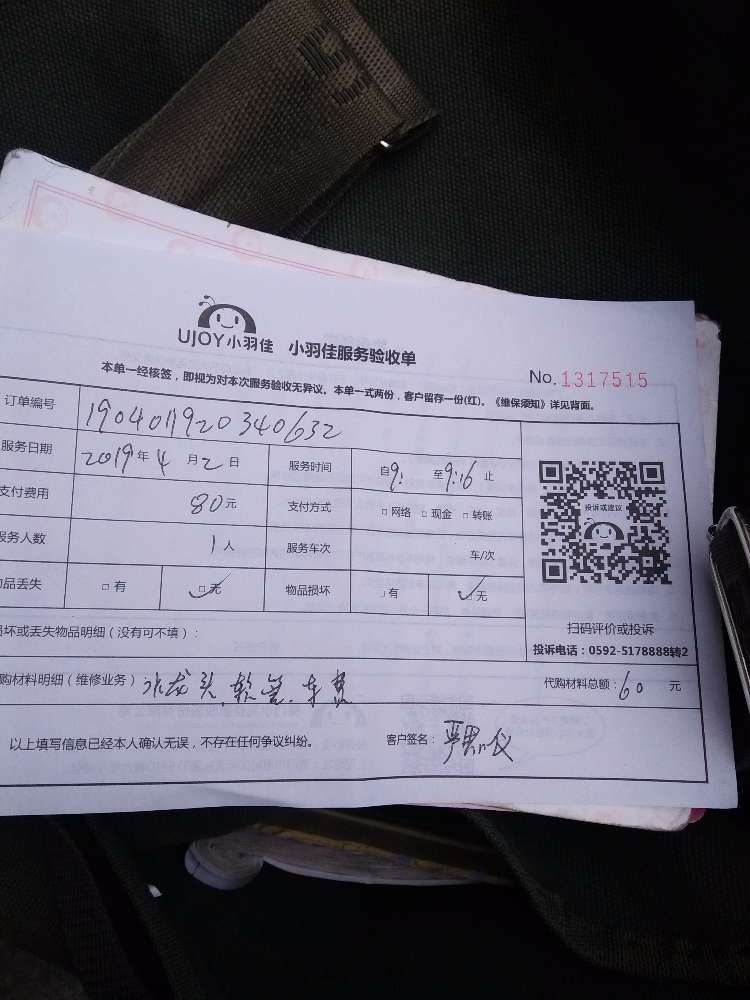 UJOY小羽佳 小羽佳服务验收单
No. 1317515
本单一经核签，即视为对本次服务验收无异议。本单一式两份，客户留存一份(红)。《维保须知》详见背面。
订单编号 190401920340632
服务日期 2019年4月2日 服务时间 自9: 至9:16止
支付费用 80元 支付方式 □网络 □现金 □转账
服务人数 1人 服务车次 车/次
品丢失 □有 □无 物品损坏 □有 □无
投诉或建议
扫码评价或投诉
投诉电话：0592-5178888转2
损坏或丢失物品明细（没有可不填）：
购材料明细（维修业务） 水龙头、软管、车费 代购材料总额：60元
以上填写信息已经本人确认无误，不存在任何争议纠纷。 客户签名：